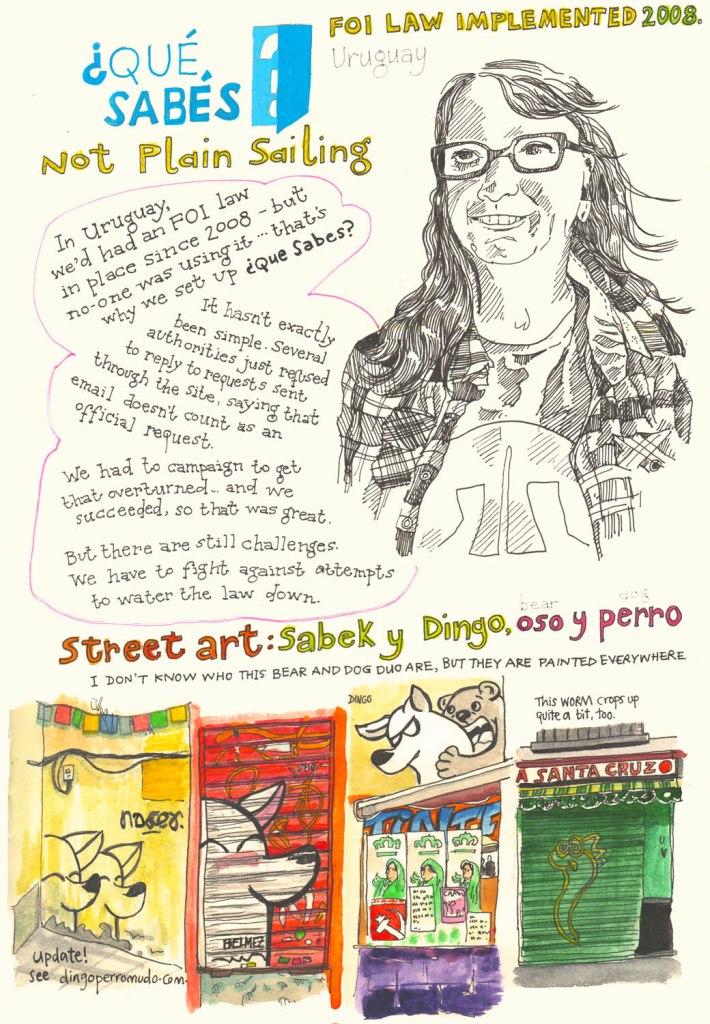 FOI LAW IMPLEMENTED 2008.
Uruguay
¿QUÉ
SABÉS
Not Plain Sailing
In Uruguay,
we'd had an FOI law
in place since 2008 - but
no-one was using it ... that's
why we set up ¿Que Sabes?
It hasn't exactly
been simple. Several
authorities just refused
to reply to requests sent
through the site, saying that
email doesn't count as an
official request.
We had to campaign to get
that overturned... and we
succeeded, so that was great.
But there are still challenges.
We have to fight against attempts
to water the law down.
bear dog
Street art: Sabek y Dingo, oso y perro
I DON'T KNOW WHO THIS BEAR AND DOG DUO ARE, BUT THEY ARE PAINTED EVERYWHERE
noser.
update!
see dingoperromudo.com
BELMEZ
DINGO
TINTE
This WORM crops up
quite a bit, too.
A SANTA CRUZ